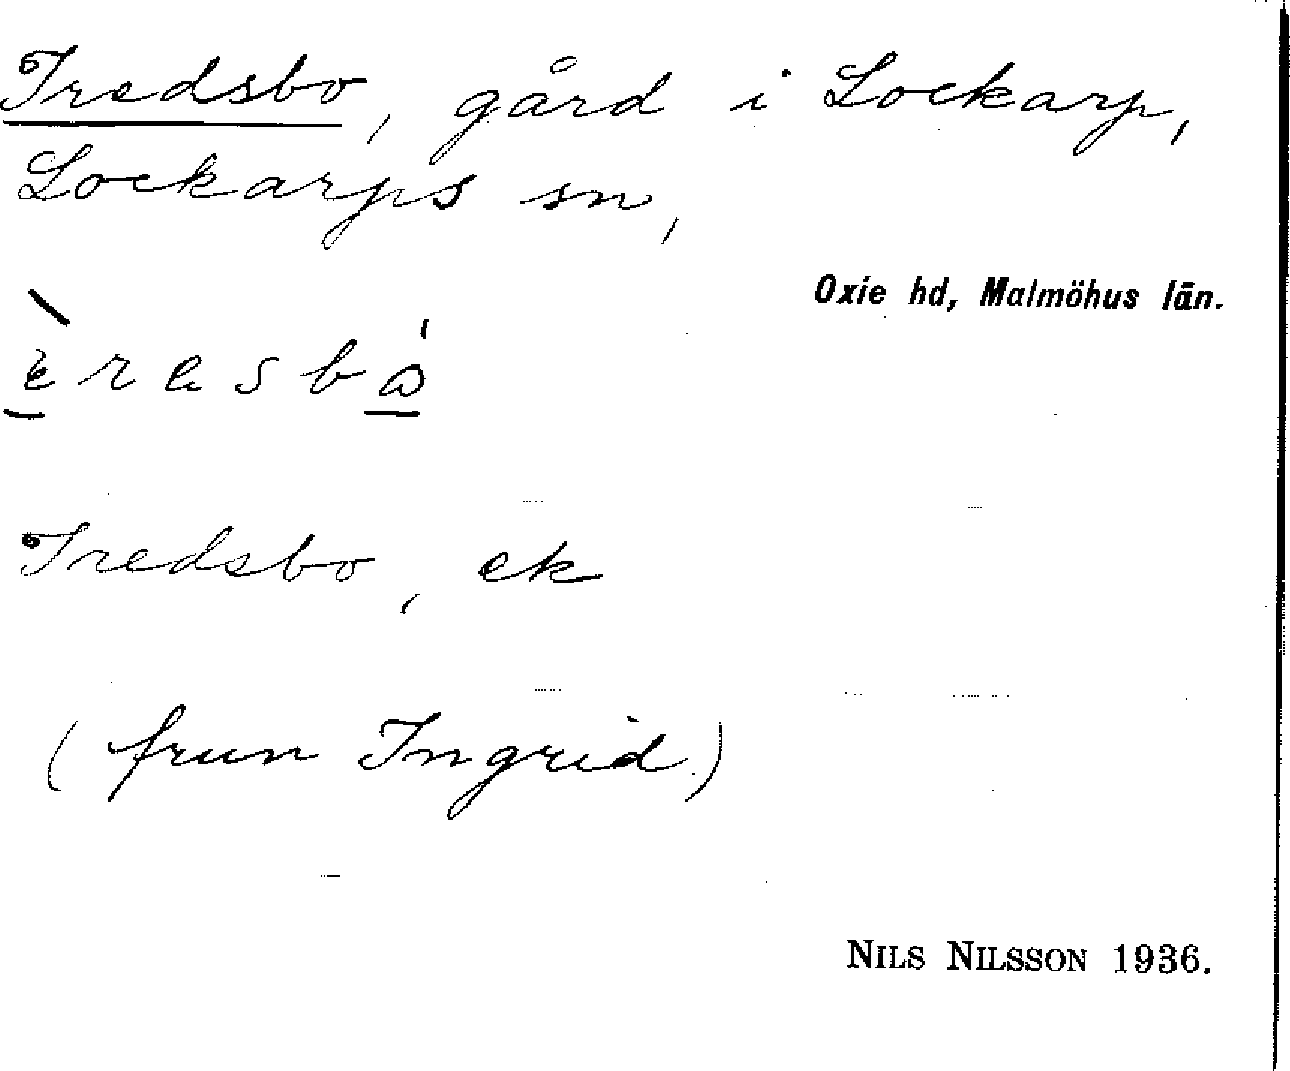 Iredsbo, gård i Lockarp,
Lockarps sn,
Oxie hd, Malmöhus län.
Iredsbo, ek
(frun Ingrid)
NILS NILSSON 1936.